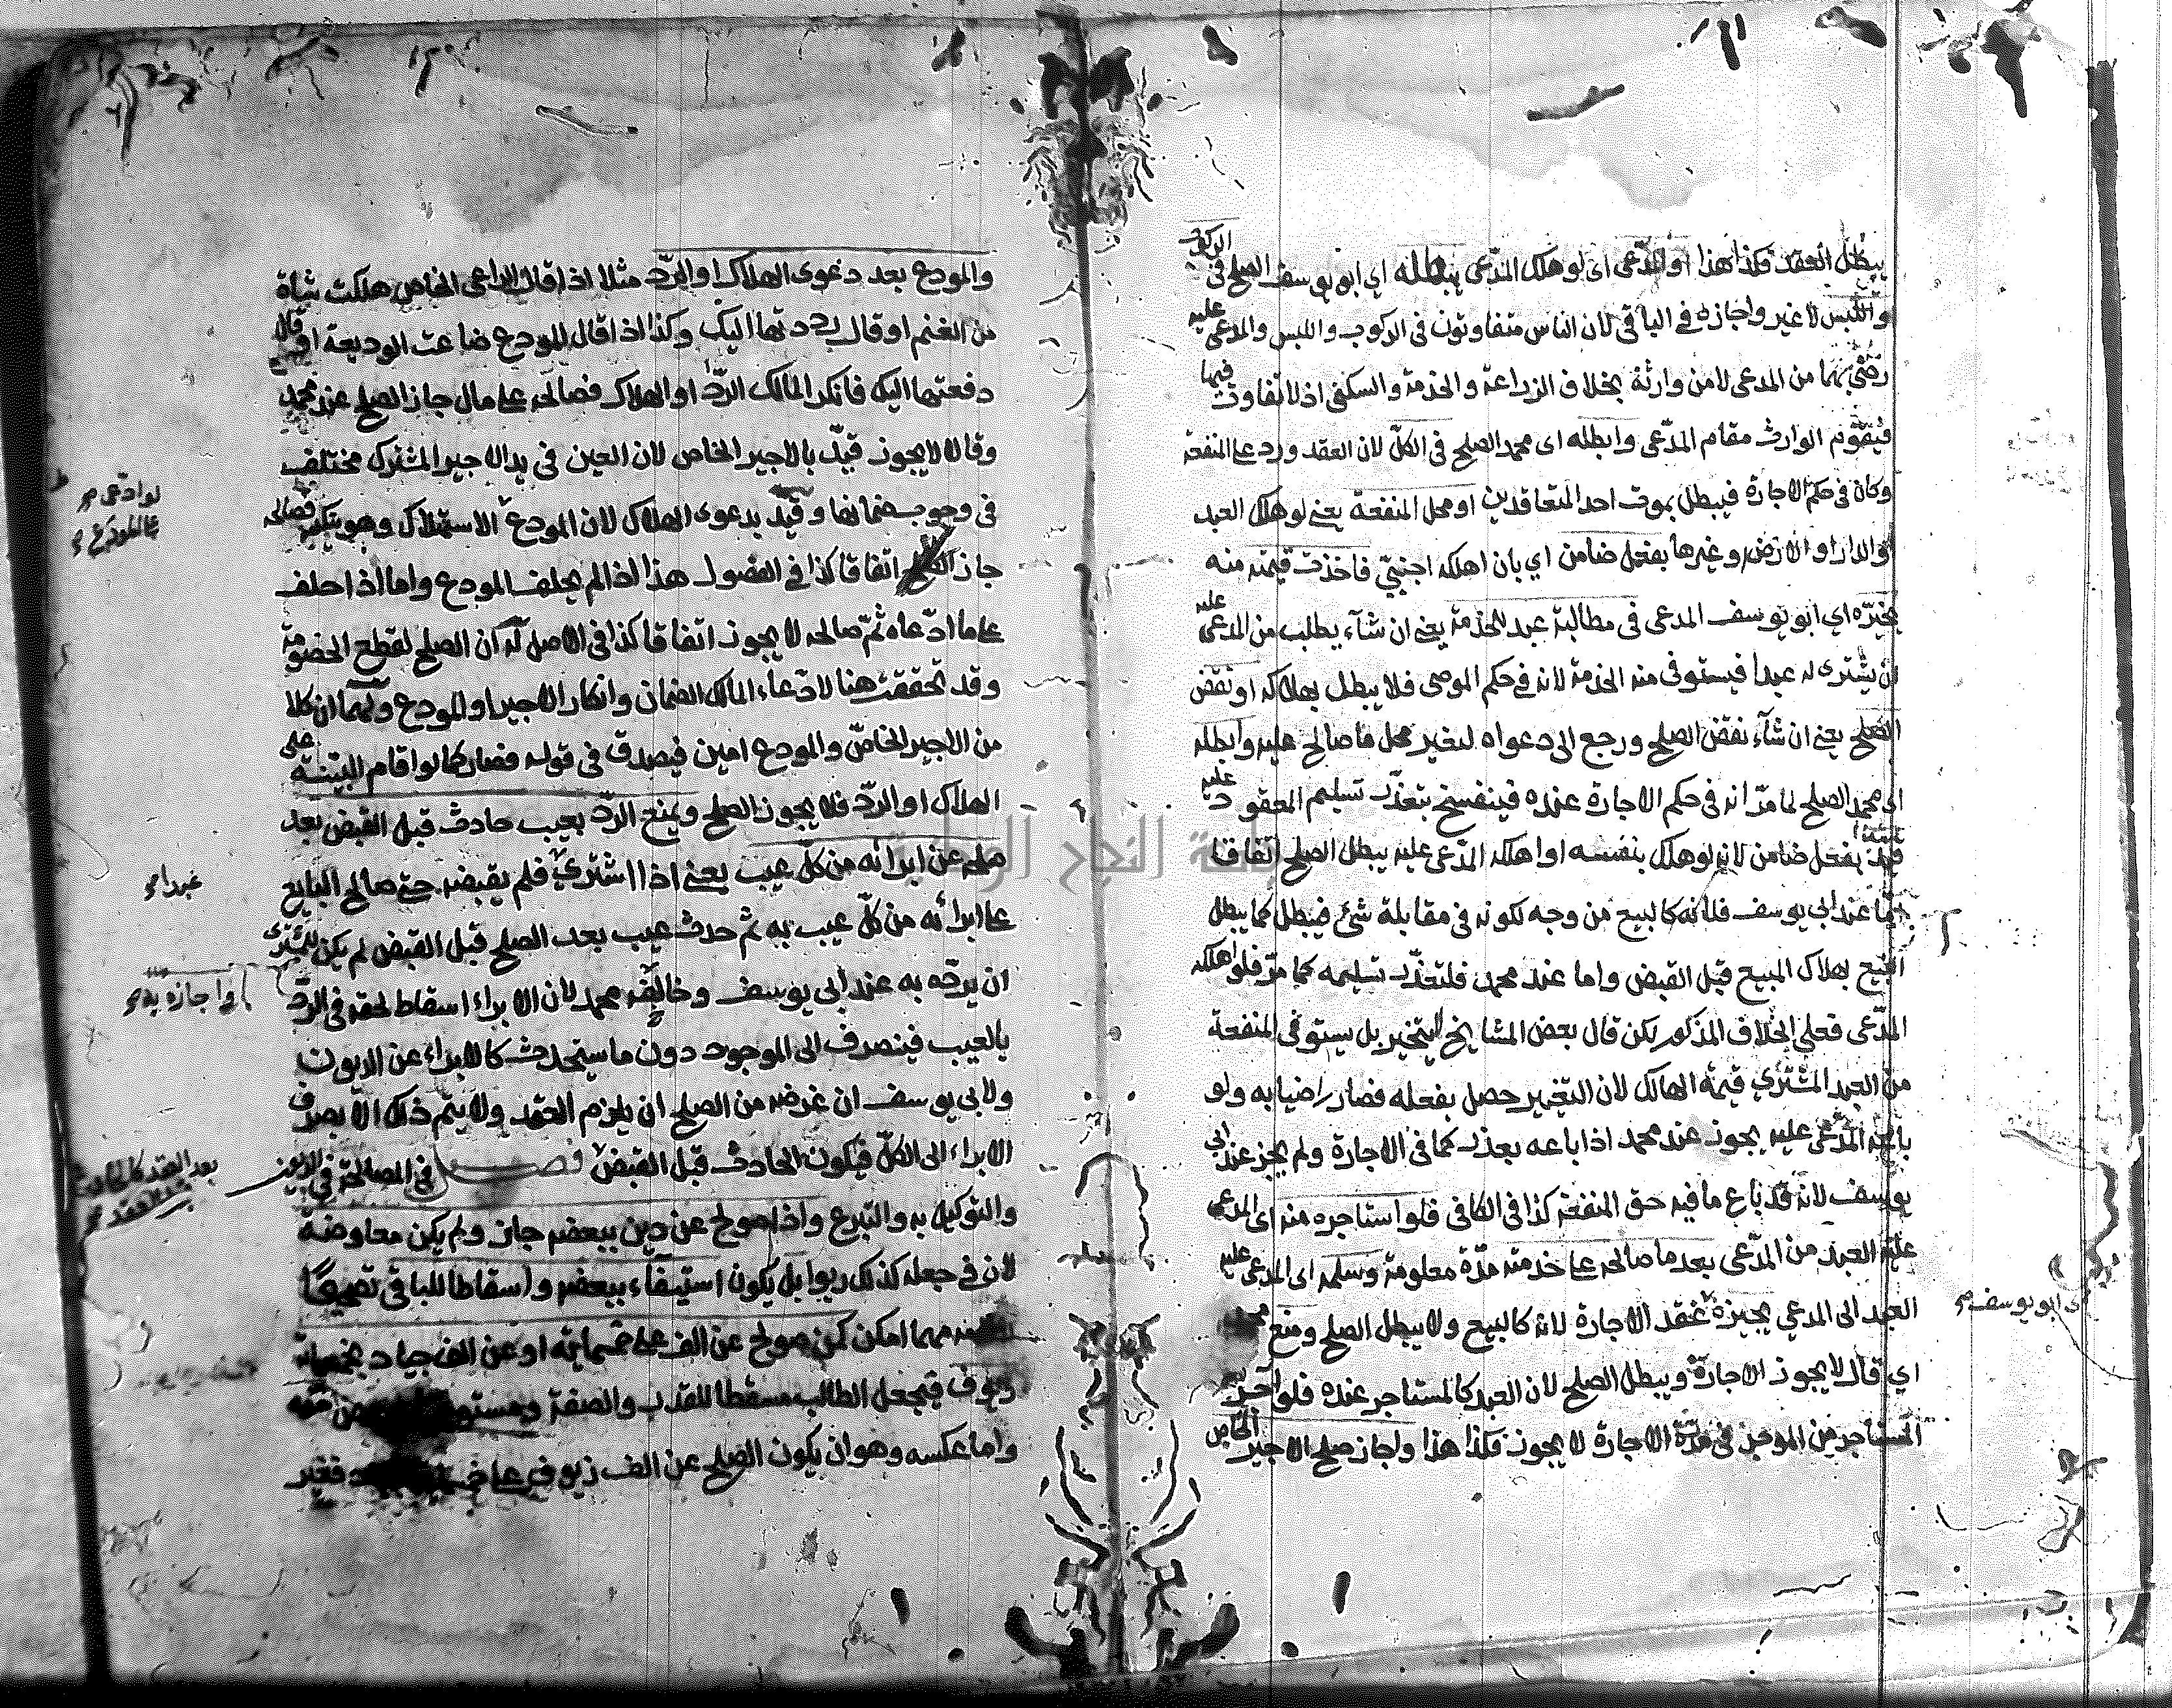 يبطل العقد فكذا هذا او المدعى اى لو هلك المدعى يبطله اي ابو يوسف الصلح فى الركوب
واللبس لا غير واجازه فى الباقى لان الناس متفاوتون فى الركوب واللبس والمدعى عليه
رضى بهما من المدعى لا من وارثه بخلاف الزراعة والخدمة والسكنى اذ لا تفاوت فيها
فيقوم الوارث مقام المدّعى وابطله اى محمد الصلح فى الكلّ لان العقد ورد على المنفعة
وكان فى حكم الاجارة فيبطل بموت احد المتعاقدين او محل المنفعة يعنى لو هلك العبد
او الدار او الارض وغيرها بفعل ضامن اي بان اهلكه اجنبيّ فاخذت قيمته منه
يخيّره اي ابو يوسف المدعى فى مطالبة عبد للخدمة يعنى ان شآء يطلب من المدعى عليه
ان يشترى له عبدا فيستوفى منه الخدمة لانه فى حكم الموصى فلا يبطل بهلاكه او نقض
الصلح يعنى ان شآء نقض الصلح ورجع الى دعواه لتغير محل ما صالح عليه وابطله
اى محمد الصلح لما مرّ انه فى حكم الاجارة عنده فينفسخ بتعذّر تسليم المعقود عليه
قيد بفعل ضامن لانه لو هلك بنفسه او اهلكه المدّعى عليه يبطل الصلح اتفاقا
اما عند ابى يوسف فلانه كالبيع من وجه لكونه فى مقابلة شئ فيبطل كما يبطل
البيع بهلاك المبيع قبل القبض واما عند محمد فلتعذّر تسليمه كما مرّ فلو اهلكه
المدّعى فعلى الخلاف المذكور لكن قال بعض المشايخ لا يتخير بل يستوفى المنفعة
من العبد المشترى قيمة الهالك لان التغيير حصل بفعله فصار راضيا به ولو
باعه المدّعى عليه يجوز عند محمد اذا باعه بعذر كما فى الاجارة ولم يجز عند ابى
يوسف لانه قد باع ما فيه حق المنفعة كذا فى الكافى فلو استاجره منه اى المدعى
عليه العبد من المدّعى بعد ما صالحه على خدمته مدّة معلومة وسلمه اى المدعى عليه
العبد الى المدعي يجيزه عقد الاجارة لانه كالبيع ولا يبطل الصلح ومنع محمد
اي قال لا يجوز الاجارة ويبطل الصلح لان العبد كالمستاجر عنده فلو آجر
المستاجر من الموجر فى مدّة الاجارة لا يجوز فكذا هذا واجاز صلح الاجير الخاص
اى ابو يوسف
والمودع بعد دعوى الهلاك او الردّ مثلا اذا قال الراعى الخاص هلكت شاة
من الغنم او قال رددتها اليك وكذا اذا قال المودع ضاعت الوديعة او قال
دفعتها اليك فانكر المالك الردّ او الهلاك فصالحه على مال جاز الصلح عند محمد
وقالا لا يجوز قيّد بالاجير الخاص لان العين فى يد الاجير المشترك مختلف
فى وجوب ضمانها وقيد بدعوى الهلاك لان المودع الاستهلاك وهو ينكر فصالحه
لو ادّعى
على المودع
جاز الصلح اتفاقا كذا فى الفصول هذا اذا لم يحلف المودع واما اذا حلف
على ما ادّعاه ثمّ صالحه لا يجوز اتفاقا كذا فى الاصل له ان الصلح لقطع الخصومة
وقد تحققت هنا لادّعاء المالك الضمان وانكار الاجير او المودع ولهما ان كلا
من الاجير الخاصّ والمودع امين فيصدق فى قوله فصار كما لو اقام البينة على
الهلاك او الردّ فلا يجوز الصلح ويمنع الردّ بعيب حادث قبل القبض بعد
صلحه عن ابرائه من كلّ عيب يعنى اذا اشترى فلم يقبضه حتى صالح البايع
عبدا
على ابرائه من كلّ عيب به ثم حدث عيب بعد الصلح قبل القبض لم يكن للمشترى
ان يردّه به عند ابى يوسف وخالفه محمد لان الابراء اسقاط لحقه فى الردّ
واجازه
بالعيب فينصرف الى الموجود دون ما سيحدث كالابراء عن الديون
ولابى يوسف ان غرضه من الصلح ان يلزم العقد ولا يتم ذلك الّا بصرف
الابراء الى الكلّ فيكون الحادث قبل القبض فصل فى المصالحة فى الديون
بعد العقد
والتوكيل به والتبرع واذا صولح عن دين ببعضه جاز ولم يكن معاوضة
لان فى جعله كذلك ربوا بل يكون استيفاء ببعضه واسقاطا للباقى تصحيحا
مهما امكن كمن صولح عن الف على خمسمائة او عن الف جياد بخمسمائة
زيوف فيجعل الطالب مسقطا للقدر والصفة
واما عكسه وهو ان يكون الصلح عن الف زيوف على